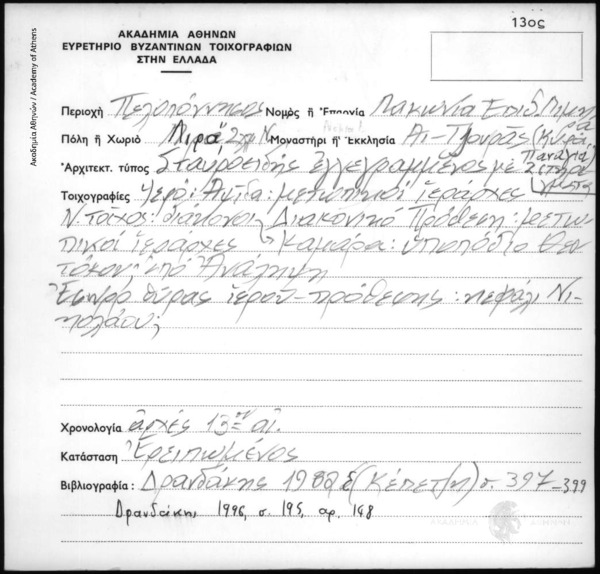 13ος
ΑΚΑΔΗΜΙΑ ΑΘΗΝΩΝ
ΕΥΡΕΤΗΡΙΟ ΒΥΖΑΝΤΙΝΩΝ ΤΟΙΧΟΓΡΑΦΙΩΝ
ΣΤΗΝ ΕΛΛΑΔΑ
Ακαδημία Αθηνών / Academy of Athens
Περιοχή Πελοπόννησος Νομός ή Ἐπαρχία Λακωνία Επιδ. Λιμηρά
Πόλη ή Χωριό Μοναστήρι ή Ἐκκλησία Αι-
Ἀρχιτεκτ. τύπος Σταυροειδής ἐγγεγραμμένος με
Τοιχογραφίες Ἱερό: Αψίδα: μετωπικοί ἱεράρχες
Ν. τοῖχος: διάκονοι Διακονικό Πρόθεση: μετω-
πικοί ἱεράρχες Καμάρα: υποπόδιο Θεο-
τόκου, ἀπό Ἀνάληψη
θύρας ἱεροῦ - πρόθεσης: κεφάλι Νι-
κολάου;
Χρονολογία ἀρχές 13ου αἰ.
Κατάσταση Ἐρειπωμένος
Βιβλιογραφία: Δρανδάκης 1982 σ. 397-399
Δρανδάκης 1996, σ. 195, αρ. 148